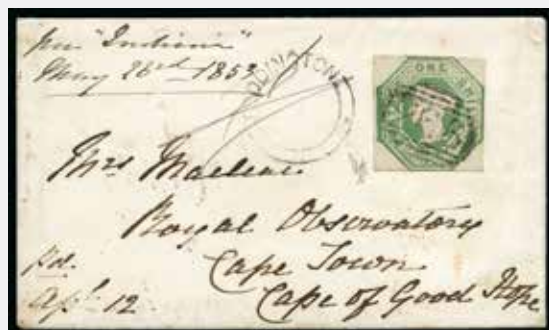 per "Indiana"
May 26rd 1853
ADDINGTON
ONE SHILLING
Mrs Maclear
Royal Observatory
Cape Town
Cape of Good Hope
pd.
Apl 12